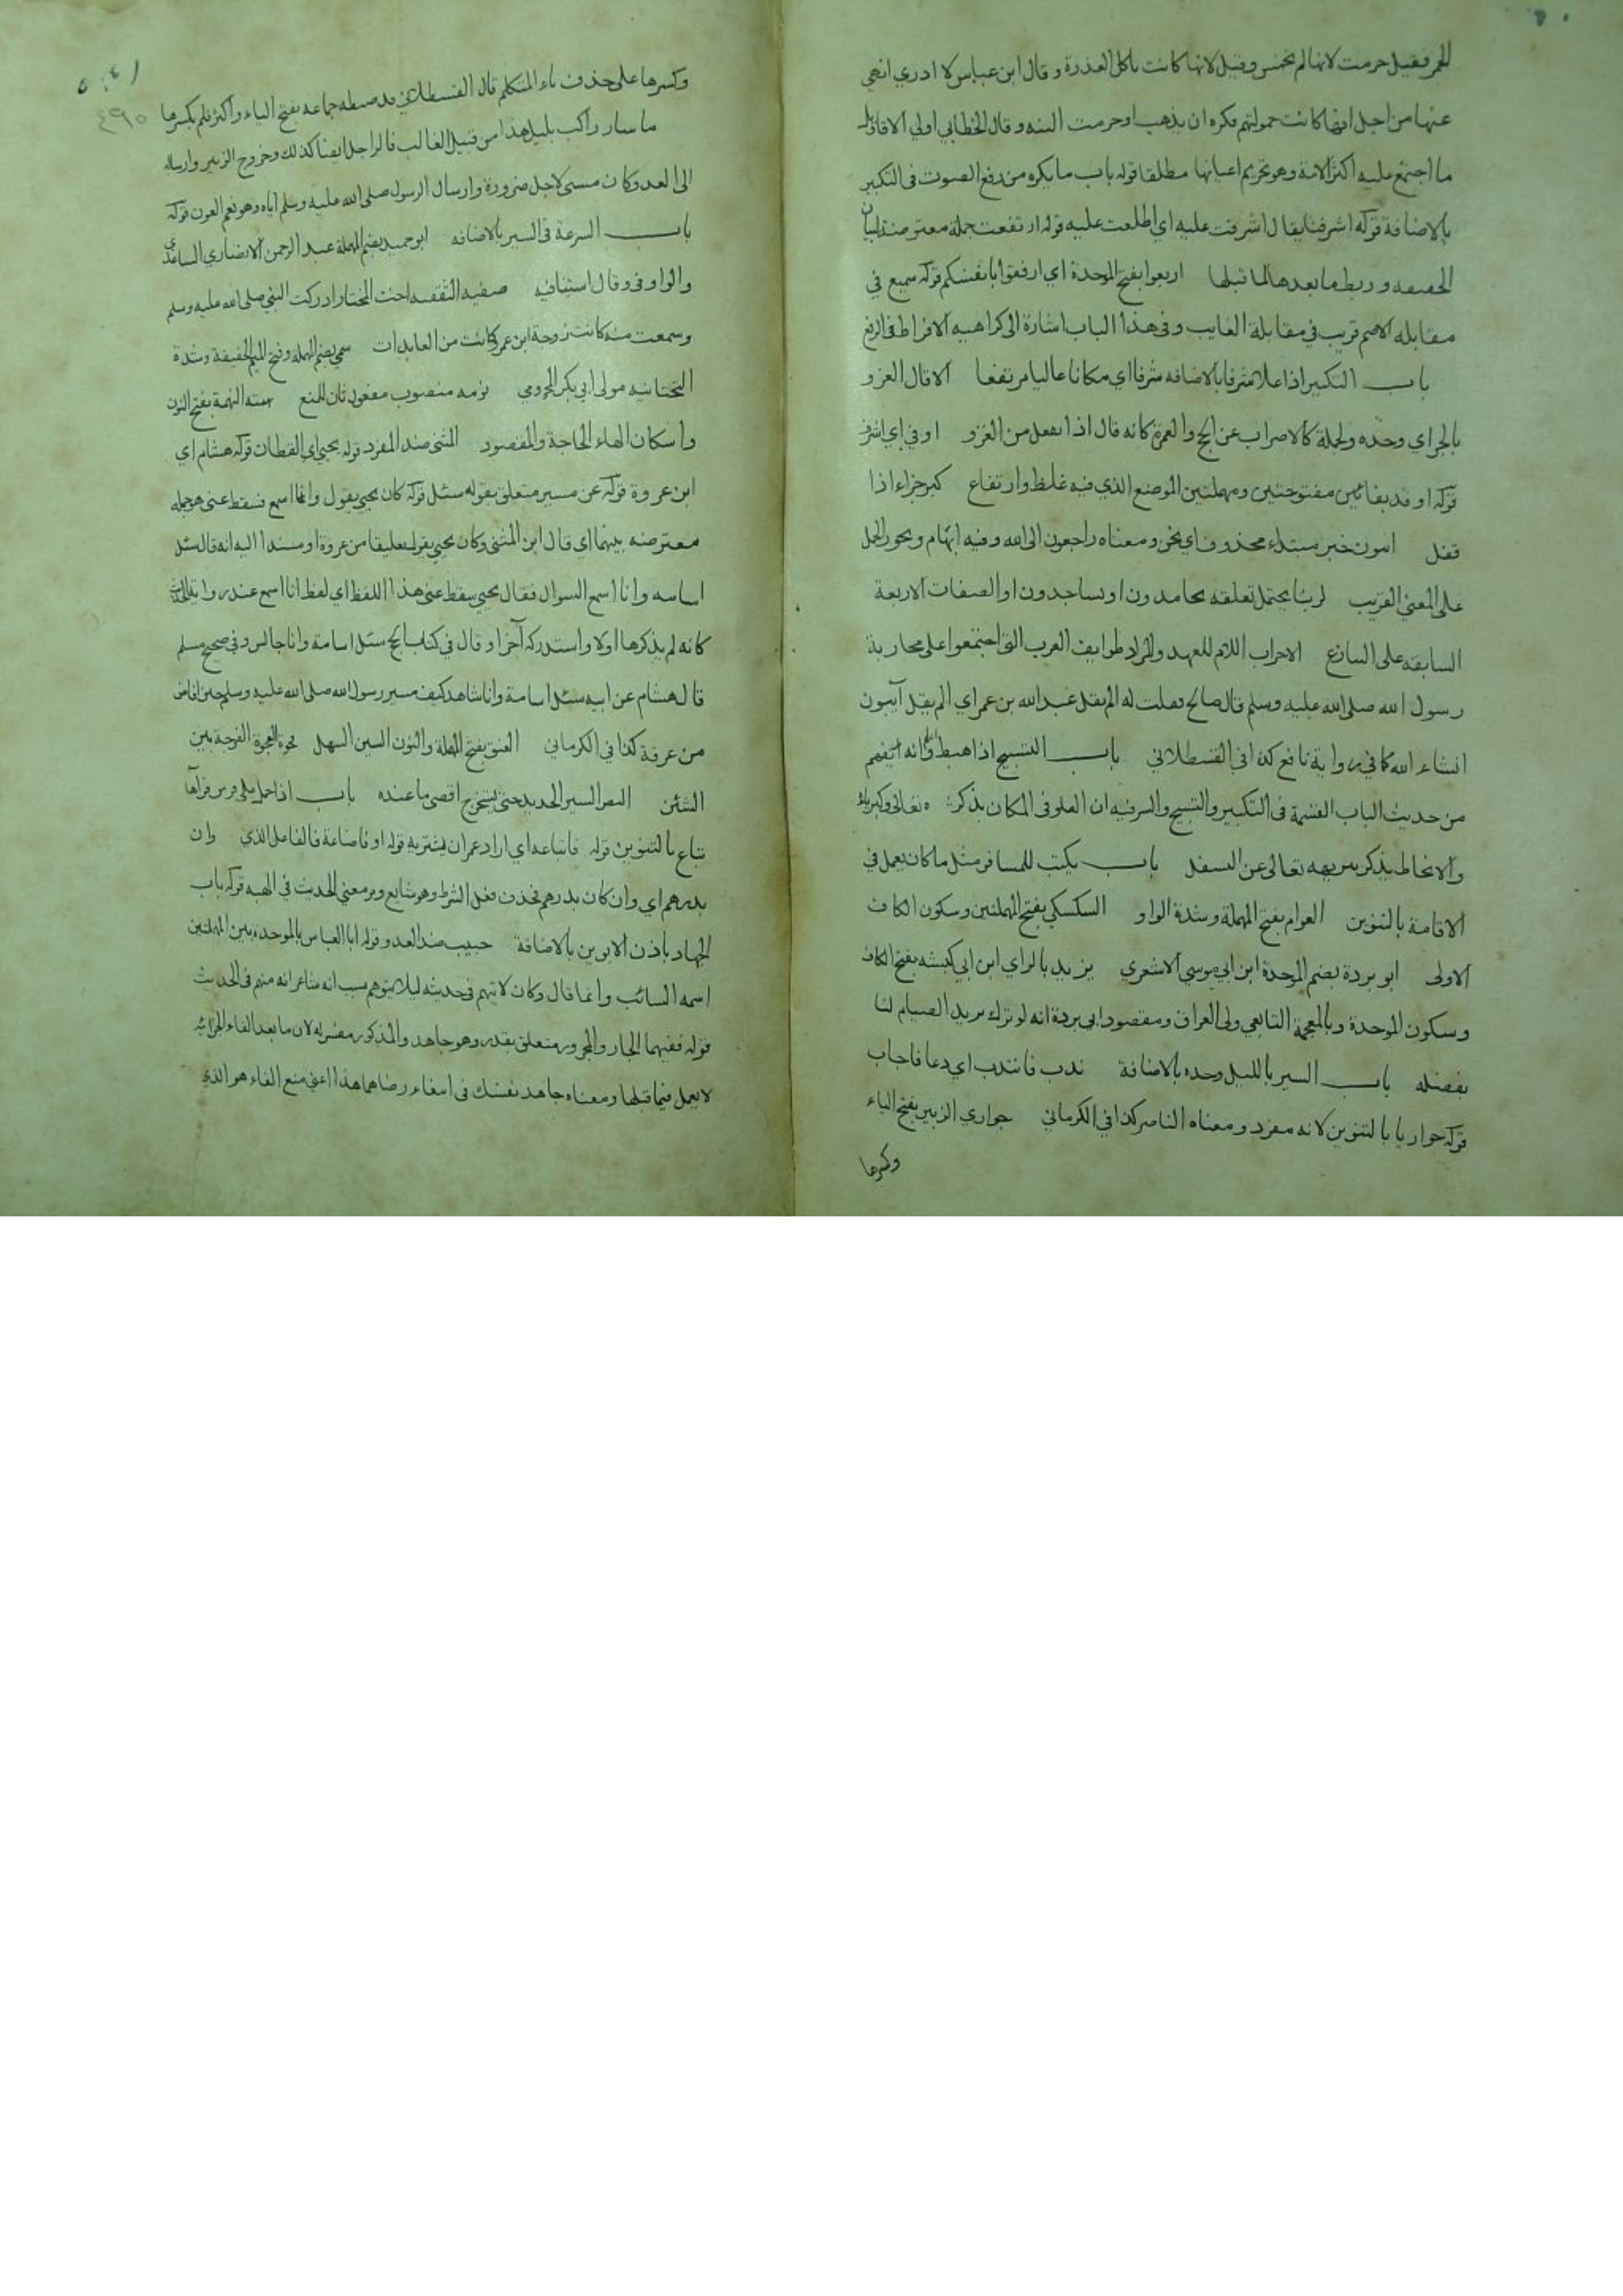 للحمر فقيل حرمت لانها لم تخمس وقيل لانها كانت تاكل العذرة وقال ابن عباس لا ادري انهي
عنها من اجل انها كانت حمولتهم فكره ان يذهب او حرمت البته وقال الخطابي اولي الاقاويل
ما اجتمع عليه اكثر الامة وهو تحريم اعيانها مطلقا قوله باب ما يكره من رفع الصوت في التكبير
بالاضافة قوله اشرفنا يقال اشرفت عليه اي اطلعت عليه قوله ارتفعت جملة معترضة لبيان
وربط ما بعدها لما قبلها اربعوا بفتح الموحدة اي ارفقوا بانفسكم قوله سميع في
مقابله الاصم قريب في مقابلة الغايب وفي هذا الباب اشارة الى كراهيه الافراط في الرفع
باب التكبير اذا علا شرفا بالاضافه شرفا اي مكانا عاليا مرتفعا الا قال الغزو
بالجر اي وحده ولجملة كالاضراب عن الحج والعمرة كانه قال اذا يقفل من الغزو اوفي اي اشرف
قوله او فدفد بفائين مفتوحتين ومهملتين الموضع الذي فيه غلظ وارتفاع كبر جزاء اذا
قفل ايبون خبر مبتداء محذوف اي نحن ومعناه راجعون الى الله وفيه ايهام ويجوز الحمل
على المعنى القريب لربنا يحتمل تعلقه بحامدون او بساجدون او الصفات الاربعة
السابقه على التنازع الاحزاب اللام للعهد والمراد طوايف العرب التي اجتمعوا على محاربة
رسول الله صلى الله عليه وسلم قال صالح فقلت له الم يقل عبد الله بن عمر اي الم يقل آيبون
انشاء الله كما في رواية نافع كذا في القسطلاني باب التسبيح اذا هبط واديا انه يفهم
من حديث الباب القسمة في التكبير والتسبيح والسر فيه ان العلو في المكان يذكر تعالى وكبرياءه
والانحطاط يذكر تنزيهه تعالى عن السفل باب يكتب للمسافر مثل ما كان يعمل في
الاقامة بالتنوين العوام بفتح المهملة وشدة الواو السكسكي بفتح المهملتين وسكون الكاف
الاولى ابو بردة بضم الموحدة ابن ابي موسي الاشعري يزيد بالزاي ابن ابي كبشه بفتح الكاف
وسكون الموحدة وبالمعجمة التابعي ولي العراق ومقصود ابي بردة انه لو ترك يزيد الصيام لنا
بفضله باب السير بالليل وحده بالاضافة ندب فانتدب اي دعا فاجاب
قوله حواريا بالتنوين لانه مفرد ومعناه الناصر كذا في الكرماني حواري الزبير بفتح الياء
وكسرها
وكسرها على حذف ياء المتكلم قال القسطلاني قد ضبطه جماعه بفتح الياء واكثرهم بكسرها
ما سار راكب بليل هذا من قبيل الغالب فالراجل ايضا كذلك وخروج الزبير وارساله
الى العدو كان مستثنى لاجل ضرورة وارسال الرسول صلى الله عليه وسلم اياه وهو نعم العون قوله
باب السرعة في السير بالاضافه ابو حميد بضم المهملة عبد الرحمن الانصاري الساعدي
والواو في وقال استينافيه صفيه الثقفيه اخت المختار ادركت النبي صلى الله عليه وسلم
وسمعت منه كانت زوجة ابن عمر وكانت من العابدات سمي بضم المهملة وفتح الميم الخفيفة وشدة
التحتانيه مولى ابي بكر المخزومي نومه منصوب مفعول ثان للمنع نهمته النهمة بفتح النون
واسكان الهاء الحاجة والمقصود المثنى ضد المفرد قوله يحيى اي القطان قوله هشام اي
ابن عروة قوله عن مسير متعلق بقوله سئل قوله كان يحيى يقول وانا اسمع فسقط عني هو جمله
معترضه بينهما اي قال ابن المثنى وكان يحيى يقول تعليقا من عروة او مسندا اليه انه قال سئل
اسامه وانا اسمع السوال فقال يحيى سقط عني هذا اللفظ اي لفظ انا اسمع عند رواية الحديث
كانه لم يذكرها اولا واستدركه آخرا وقال في كتاب الحج سئل اسامة وانا جالس وفي صحيح مسلم
قال هشام عن ابيه سئل اسامة وانا شاهد كيف مسير رسول الله صلى الله عليه وسلم حين افاض
من عرفة كذا في الكرماني العنق بفتح المهملة والنون السير السهل فجوة الفجوة الفرجة بين
الشئين النص السير الحديد حتى يستخرج اقصى ما عنده باب اذا حمل على فرس فرآها
تباع بالتنوين قوله فابتاعه اي اراد عمر ان يشتريه قوله او فاضاعه فالفاعل الذي وان
بدرهم اي وان كان بدرهم فحذف فعل الشرط وهو شايع ومر معنى الحديث في الهبه قوله باب
الجهاد باذن الابوين بالاضافة حبيب ضد العدو قوله ابا العباس بالموحدة بين المهملتين
اسمه السائب وانما قال وكان لا يتهم في حديثه ليلا يتوهم بسبب انه شاعر انه متهم في الحديث
قوله ففيهما الجار والمجرور متعلق بمقدر وهو جاهد والمذكور مفسر له لان ما بعد الفاء الجزائيه
لا يعمل فيما قبلها ومعناه جاهد نفسك في ابتغاء رضاهما هذا اعني منع الفاء هو الذي
٤٩٠